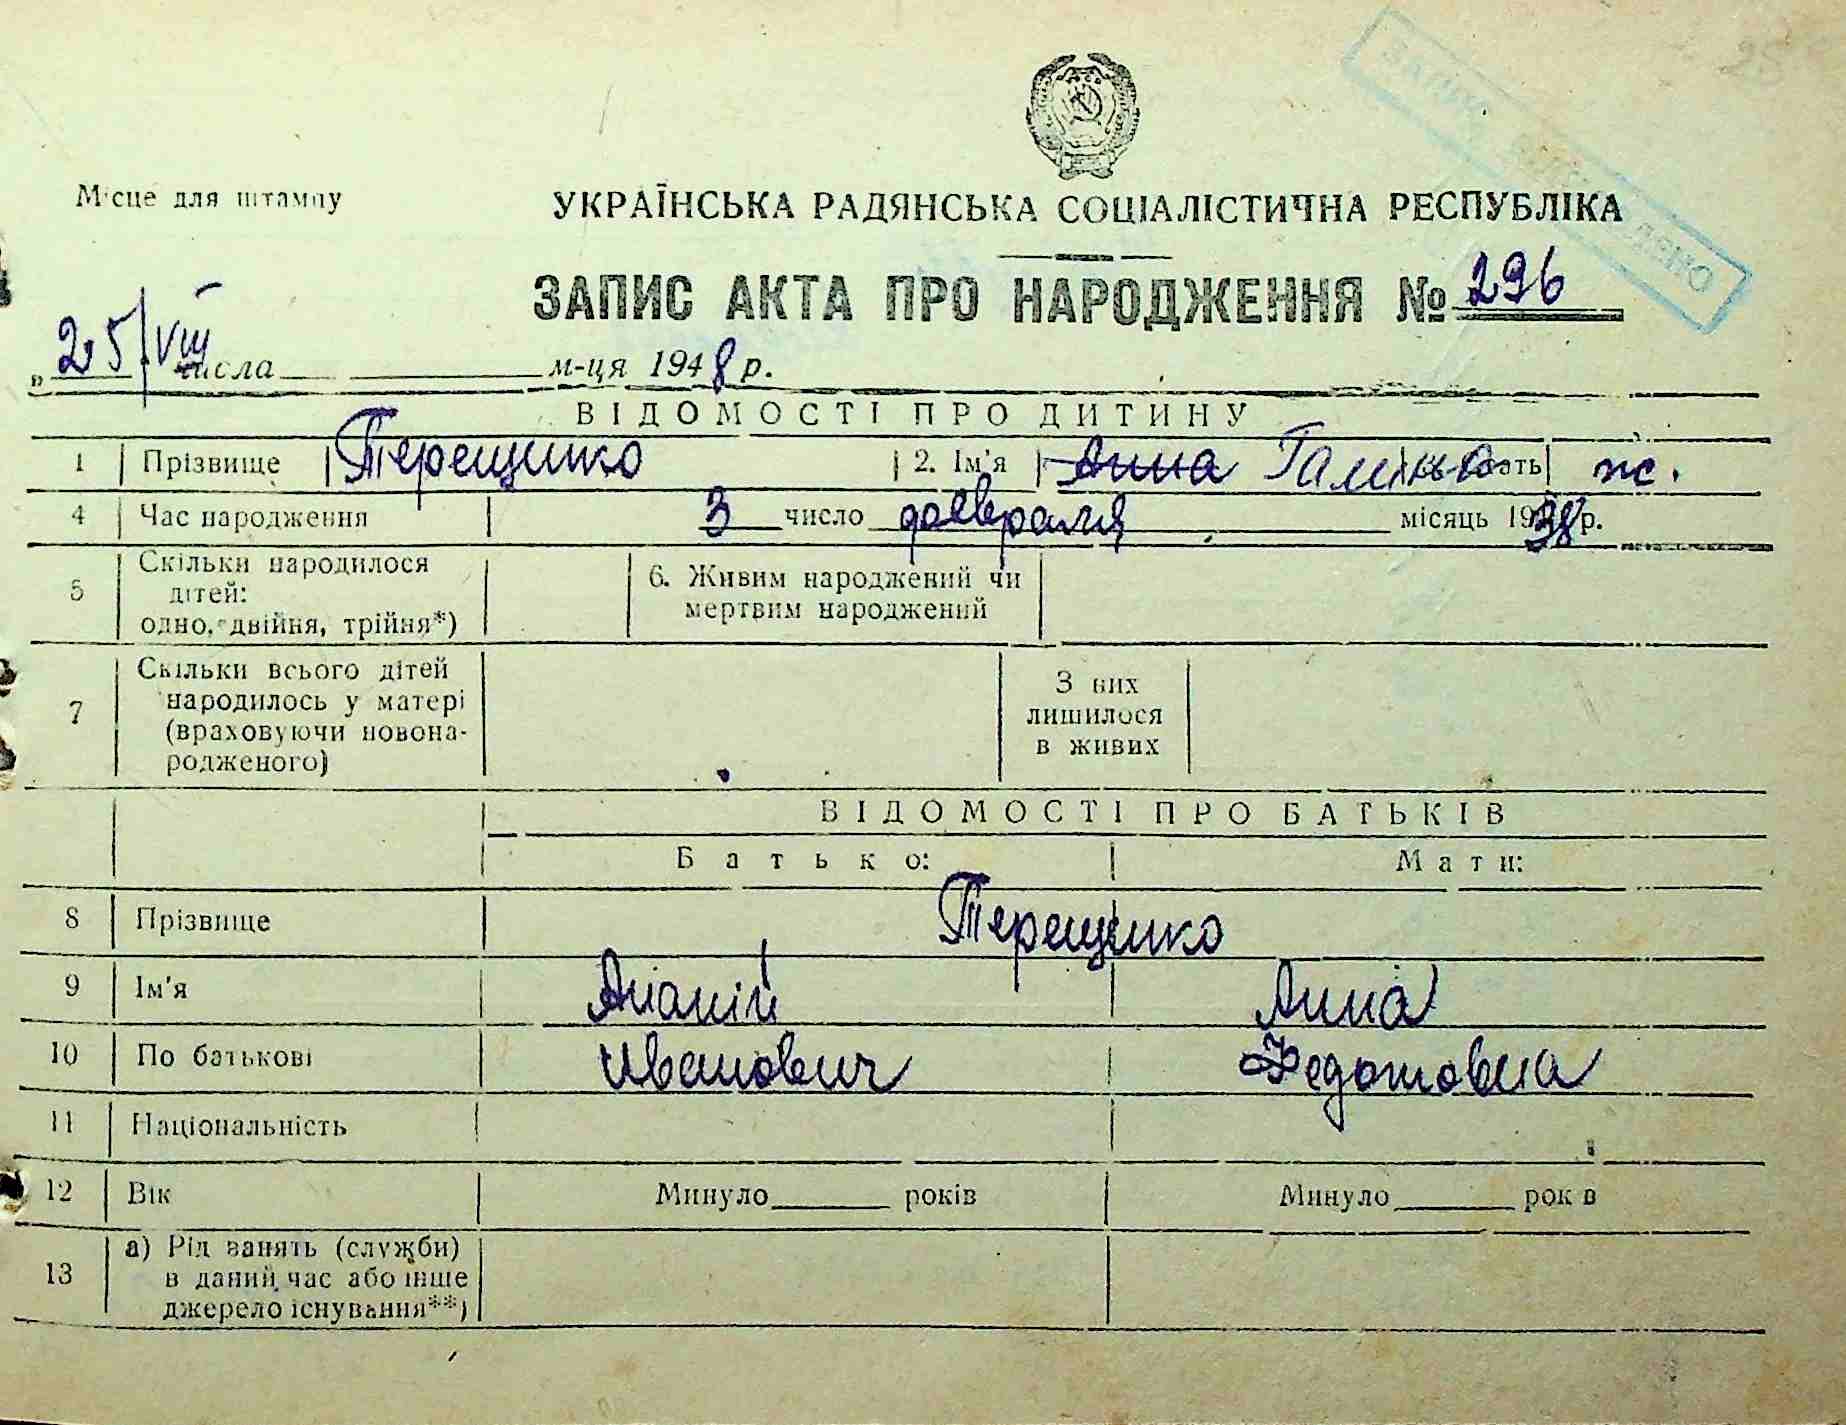 ЗАПИС ВІДНОВЛЕНО
Місце для штампу
УКРАЇНСЬКА РАДЯНСЬКА СОЦІАЛІСТИЧНА РЕСПУБЛІКА
ЗАПИС АКТА ПРО НАРОДЖЕННЯ № 296
„ 25/VIII числа м-ця 1948 р.
ВІДОМОСТІ ПРО ДИТИНУ
1 Прізвище Терещенко 2. Ім'я Анна Галина ж.
4 Час народження 3 число февраля місяць 1938 р.
5 Скільки народилося дітей: одно, двійня, трійня*) 6. Живим народжений чи мертвим народжений
7 Скільки всього дітей народилось у матері (враховуючи новонародженого) З них лишилося в живих
ВІДОМОСТІ ПРО БАТЬКІВ
Батько: Мати:
8 Прізвище Терещенко
9 Ім'я Ананій Анна
10 По батькові Иванович Федотовна
11 Національність
12 Вік Минуло років Минуло рок в
13 а) Рід занять (служби) в даний час або інше джерело існування**)